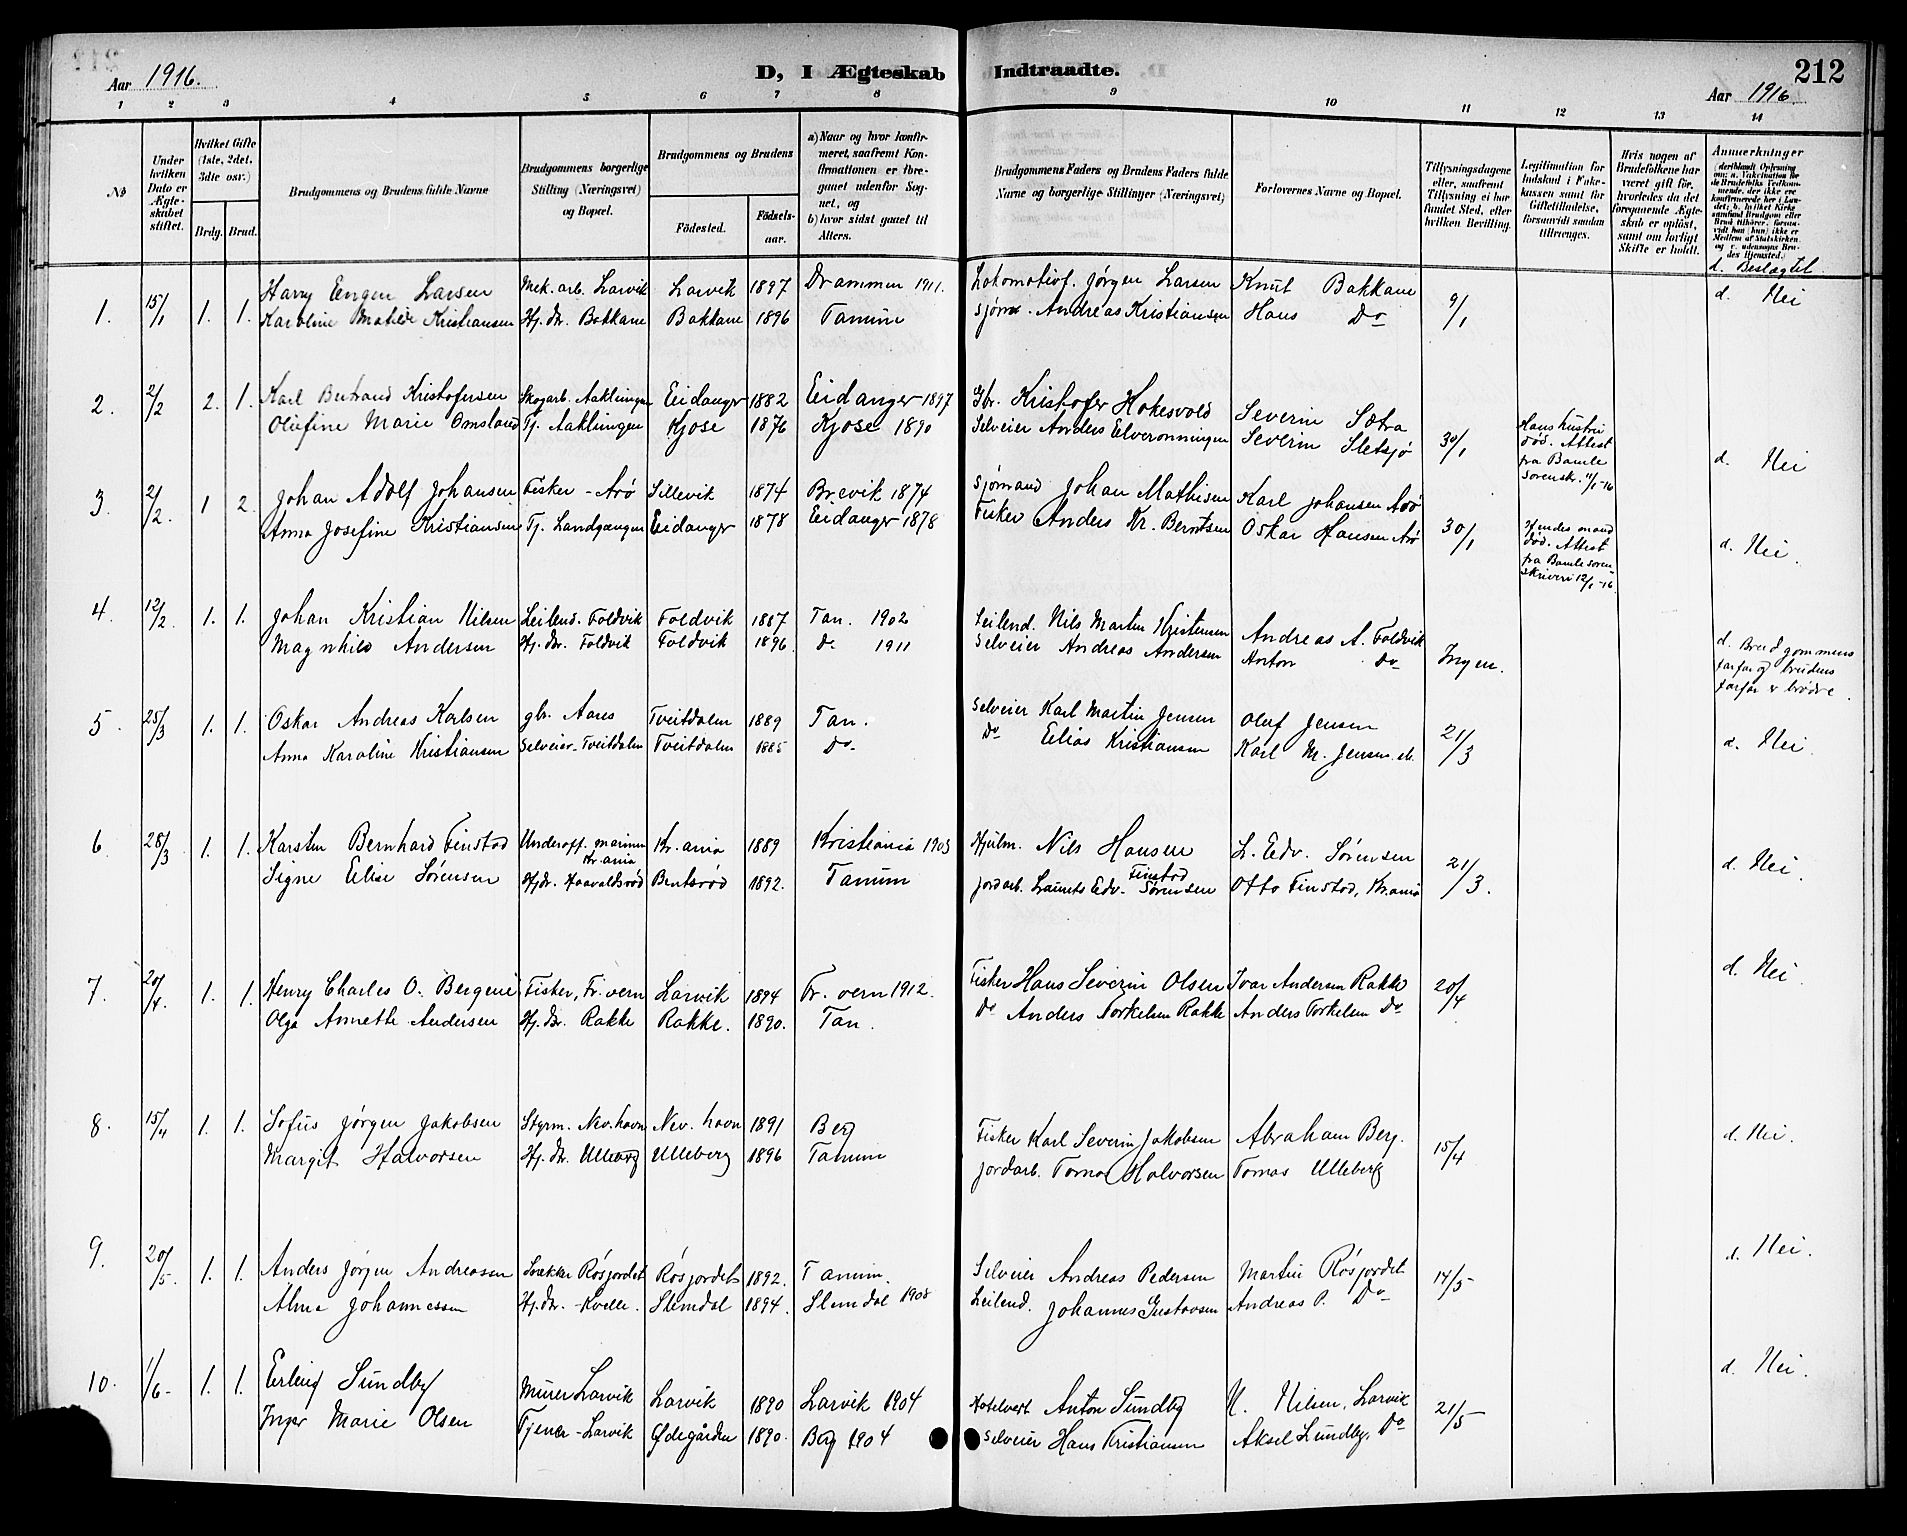 Aar 1916.
D, I Ægteskab Indtraadte.
212
Aar 1916.
1 2 3 4 5 6 7 8 9 10 11 12 13 14
No
Under hvilken Dato er Ægteskabet stiftet.
Hvilket Gifte (1ste, 2det, 3dte osv.)
Brdg. Brud.
Brudgommens og Brudens fulde Navne
Brudgommens borgerlige Stilling (Næringsvei) og Bopæl.
Brudgommens og Brudens
Födested.
Födselsaar.
a) Naar og hvor konfirmeret, saafremt Konfirmationen er foregaaet udenfor Sognet, og
b) hvor sidst gaaet til Alters.
Brudgommens Faders og Brudens Faders fulde Navne og borgerlige Stillinger (Næringsvei)
Forlovernes Navne og Bopæl.
Tillysningsdagene eller, saafremt Tillysning ei har fundet Sted, efter hvilken Bevilling.
Legitimation for Indskud i Fakrkassen samt for Giftetilladelse, forsaavidt saadan tiltrænges.
Hvis nogen af Brudefolkene har været gift før, hvorledes da det foregaaende Ægteskab er oplöst, samt om lovligt Skifte er holdt.
Anmærkninger
d. Beslægtet
1. 15/1 1. 1. Harry Eugen Larsen Mek. arb. Larvik Larvik 1897 Drammen 1911. Lokomotivf. Jørgen Larsen Knut Bakkane 9/1 d. Nei
Karoline Matilde Kristiansen Hj. dr. Bakkane Bakkane 1896 Tanum Sjøm. Andreas Kristiansen Hans Do
2. 2/2 2. 1. Karl Bertrand Kristofersen Skogarb. Aaklungen Eidanger 1882 Eidanger 1897 Gbr. Kristofer Hokesvold Severin Sætra 30/1 Hans hustru död. Attest fra Bamle sorenskr. 11/1-16 d. Nei
Olefine Marie Omsland Tj. Aaklungen Kjose 1876 Kjose 1890 Selveier Anders Elveronningen Severin Sletsjø
3. 2/2. 1 2. Johan Adolf Johansen Fisker - Arö Sillevik 1874 Brevik 1874 Sjømand Johan Mathisen Karl Johansen Arö 30/1 Hendes mand död. Attest fra Bamle sorenskriveri 12/1-16. d. Nei.
Anna Josefine Kristiansen Tj. Landgangen Eidanger 1878 Eidanger 1878 Fisker Anders Kr. Berntsen Oskar Hansen Arö
4. 12/2. 1. 1. Johan Kristian Nilsen Leilend. Foldvik Foldvik 1887 Tan. 1902 Leilend. Nils Martin Kristensen Andreas A. Foldvik Ingen. d. Brudgommens farfar og brudens farfar er brødre.
Magnhild Andersen Hj. dr. Foldvik Foldvik 1896. Do 1911 Selveier Andreas Andersen Anton Do
5. 25/3 1. 1. Oskar Andreas Karlsen gbr. Aares Tveitdalen 1889 Tan. Selveier Karl Martin Jensen Oluf Jensen 21/3 d. Nei.
Anna Karoline Kristiansen Selveier. Tveitdalen Tveitdalen 1885 Do. Do Elias Kristiansen Karl M. Jensen
6. 28/3 1. 1. Karsten Bernhard Finstad Underoff. marinen Kr.ania Kr. ania 1889 Kristiania 1903 Hjulm. Nils Hansen Finstad L. Edv. Sørensen 21/3. d. Nei.
Signe Elise Sørensen Hj.dr. Haavaldsröd Bentsröd 1892. Tanum Jordarb. Laurets Edv. Sørensen Otto Finstad, Kr.ania
7. 20/4. 1. 1. Henry Charles O. Bergene Fisker, Fr. vern Larvik 1894 Fr. vern 1912. Fisker Hans Severin Olsen Ivar Andersen Rakke 20/4 d. Nei.
Olga Annette Andersen Hj. dr. Rakke Rakke. 1890. Tan. Do Anders Torkelsen Rakke Anders Torkelsen Do
8. 15/4 1. 1. Sofus Jørgen Jakobsen Styrm. Nev.havn Nev. havn 1891 Berg Fisker Karl Severin Jakobsen Abraham Berg. 15/4 d. Nei.
Margit Halvorsen Hj. dr. Ulleberg Ulleberg 1896 Tanum Jordarb. Tomas Halvorsen Tomas Ulleberg
9. 20/5. 1. 1. Anders Jørgen Andreassen Snekker Rösjordet Rösjordet 1892. Tanum. Selveier Andreas Pedersen Martin Rösjordet 14/5 d. Nei.
Alma Johannessen Hj.dr. - Kvelle. Slemdal 1894. Slemdal 1908 Leilend. Johannes Gustavsen Andreas P. Do
10. 1/6- 1. 1. Erling Sundby Murer Larvik Larvik 1890 Larvik 1904 Hotelvert Anton Sundby N. Nilsen, Larvik 21/5 d. Nei.
Inger Marie Olsen Tjener - Larvik Ødegården 1890. Berg 1904 Selveier Hans Kristiansen Aksel Lundby, Do